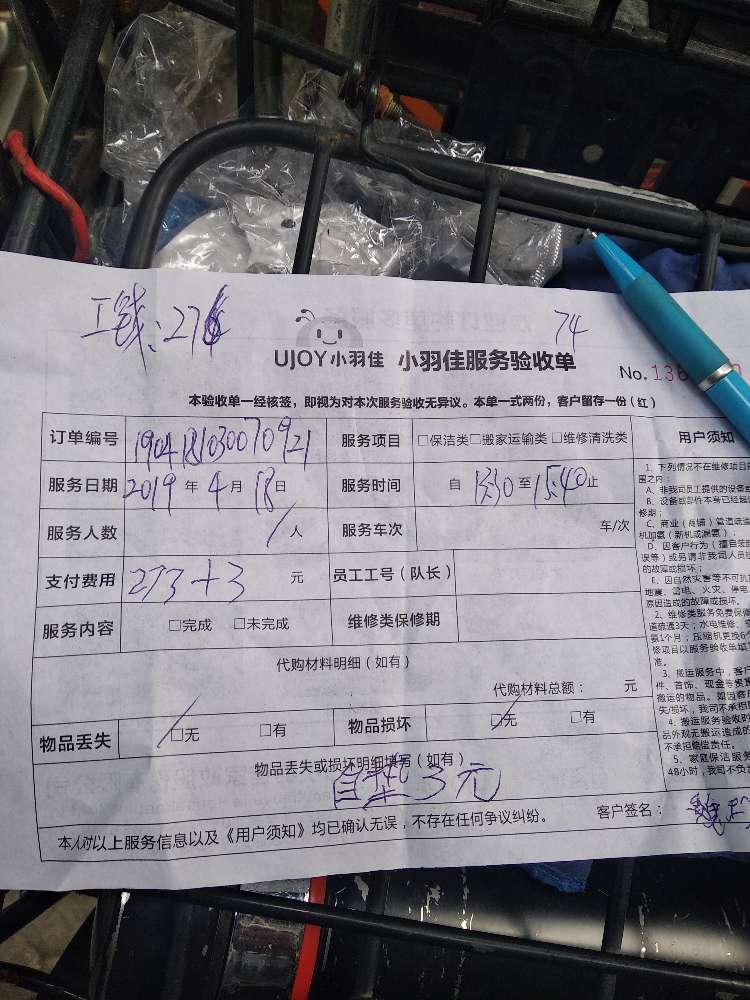 工钱:276
74
UJOY小羽佳 小羽佳服务验收单
No. 136
本验收单一经核签，即视为对本次服务验收无异议。本单一式两份，客户留存一份（红）
订单编号 1904181030070921 服务项目 □保洁类□搬家运输类□维修清洗类
服务日期 2019年4月18日 服务时间 自13:30至15:40止
服务人数 / 人 服务车次 车/次
支付费用 273+3 元 员工工号（队长）
服务内容 □完成 □未完成 维修类保修期
代购材料明细（如有）
代购材料总额： 元
物品丢失 □无 □有 物品损坏 □无 □有
物品丢失或损坏明细填写（如有）
3元
客户签名：
本人对以上服务信息以及《用户须知》均已确认无误，不存在任何争议纠纷。
用户须知
1、下列情况不在维修项目
围之内：
A、非我司员工提供的设备
B、设备或部件本身已经超
修期；
C、商业（商铺）管道疏
机加氨（新机或漏氨）；
D、因客户行为（擅自装
误等）或另请非我司人员
的故障或损坏；
E、因自然灾害等不可抗
地震、雷电、火灾、停电
原因造成的故障或损坏。
2、维修类服务免费保修
道疏通3天；水电维修、
氨1个月；压缩机更换6个
修项目以服务验收单填
准。
3、搬运服务中，客户
件、首饰、现金等贵重
搬运的物品。如因客
失/损坏，我司不承担
4、搬运服务验收时
品外观无搬运造成的
不承担赔偿责任。
5、家庭保洁服务
48小时，我司不负